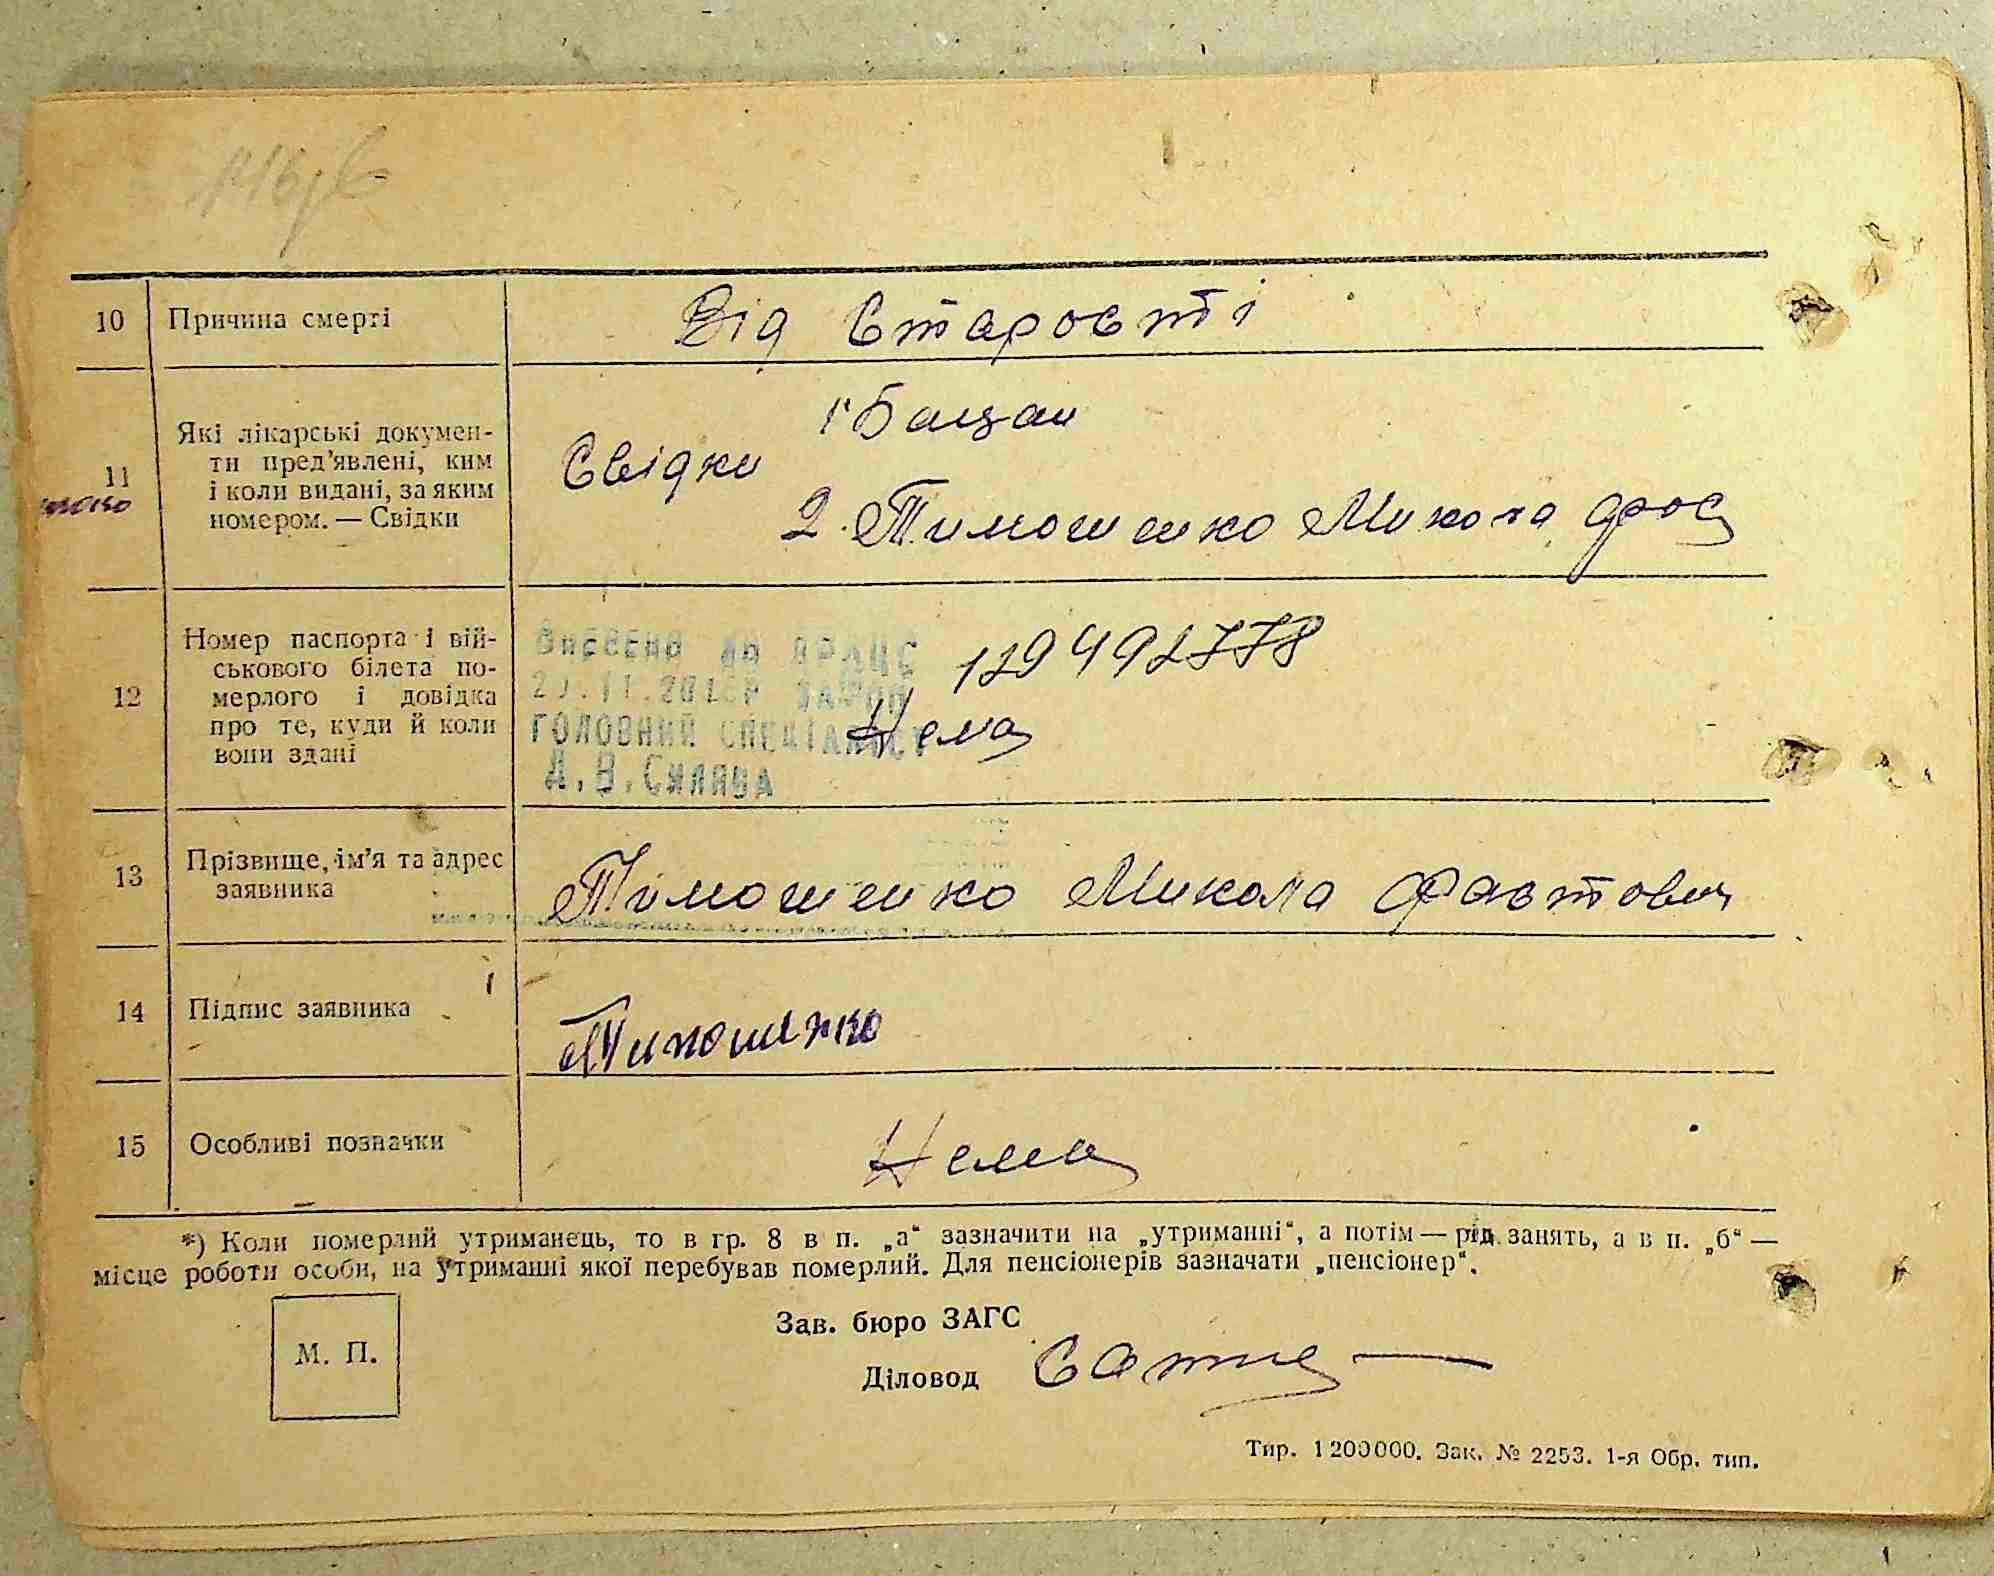 10 Причина смерті Від Старости
1. Бацан
11 Які лікарські докумен-
ти пред'явлені, ким
і коли видані, за яким
номером. — Свідки
Свідки
2. Тимошенко Микола
12 Номер паспорта і вій-
ськового білета по-
мерлого і довідка
про те, куди й коли
вони здані
Внесено до ДРАЦС
ГОЛОВНИЙ СПЕЦІАЛІСТ
Нема
13 Прізвище, ім'я та адрес
заявника
Тимошенко Микола
14 Підпис заявника Тимошенко
15 Особливі позначки Нема
*) Коли померлий утриманець, то в гр. 8 в п. „а“ зазначити на „утриманні“, а потім — рід занять, а в п. „б“ —
місце роботи особи, на утриманні якої перебував померлий. Для пенсіонерів зазначати „пенсіонер“.
М. П.
Зав. бюро ЗАГС
Діловод
Тир. 1200000. Зак. № 2253. 1-я Обр. тип.